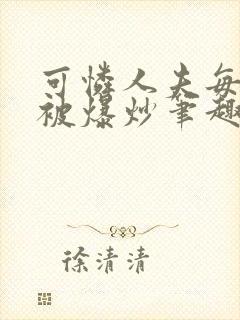 可憐人夫每
被爆炒筆趣
徐清清